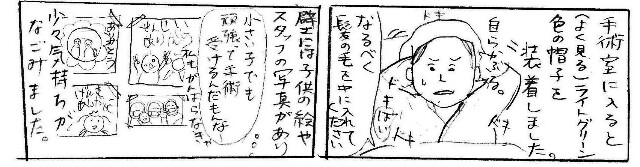 手術室に入ると
(よく見る)ライトグリーン
色の帽子を
装着しました。
自らかぶる。
ドキ
ドキ
ドキ
なるべく
髪の毛を中に入れて
ください
壁には子供の絵や
スタッフの写真があり
小さい子でも
頑張って手術
受けるんだもんな…
私もがんばらなきゃ
ありがとう
少々気持ちが
なごみました。